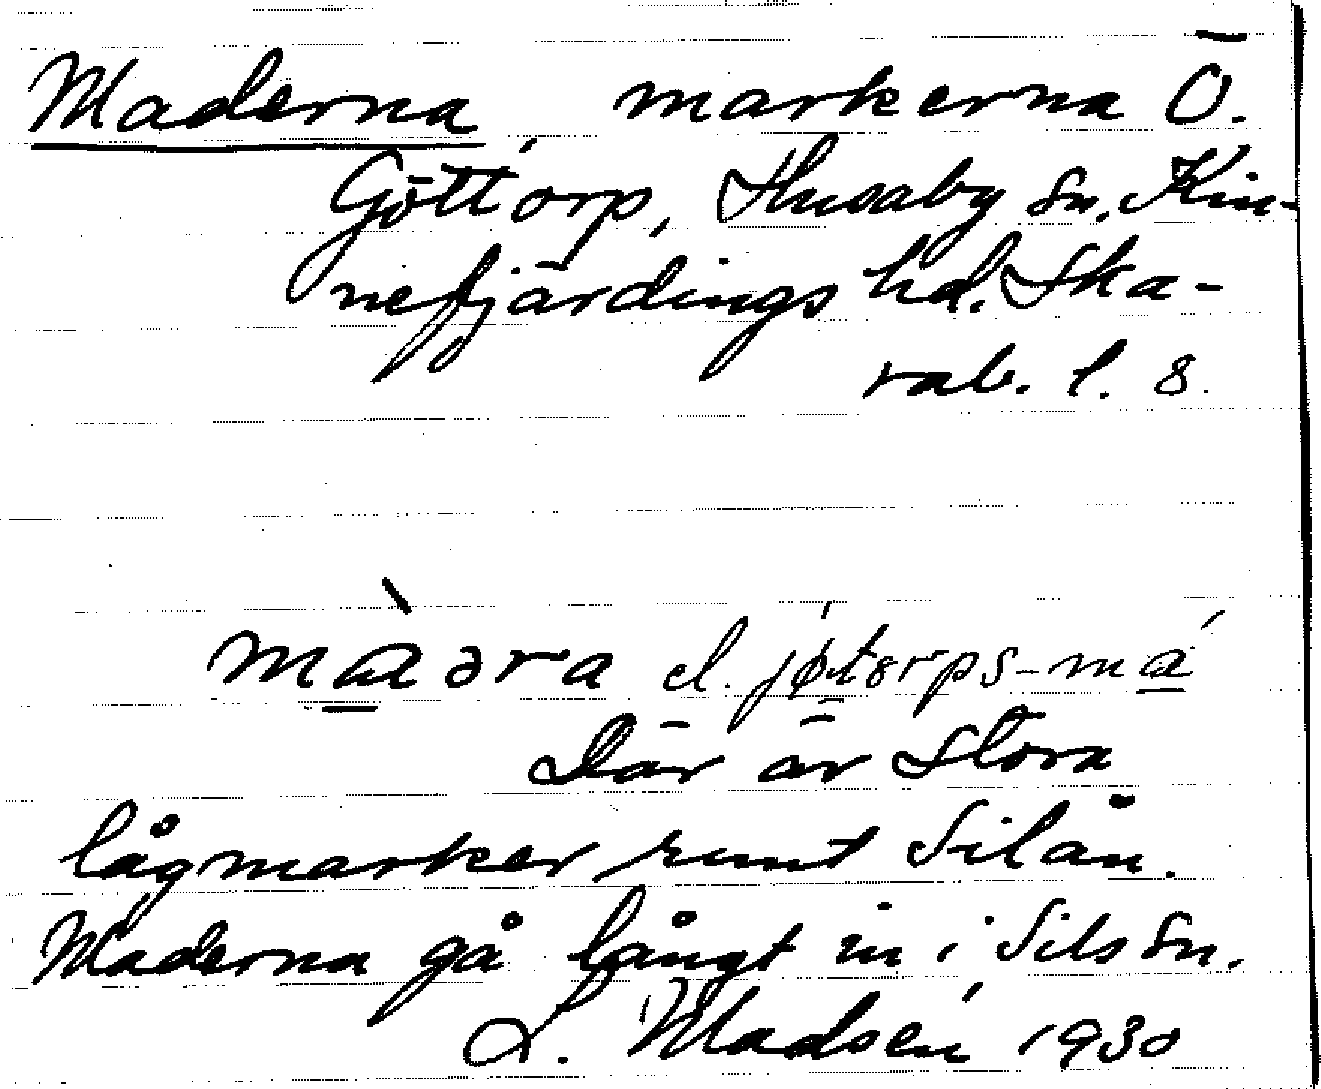 Maderna, markerna Ö.
Göttorp, Husaby sn, Kin-
nefjärdings hd. Ska-
rab. l. 8.
màəra el. jøtorps-má
Där är stora
lågmarker runt Silån.
Maderna gå långt in i Sils sn.
L. Madsén 1930